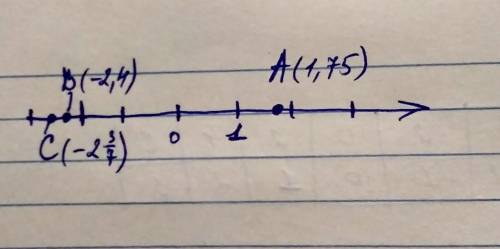 B(-2,4) A(1,75)
0 1
C(-2 3/7)